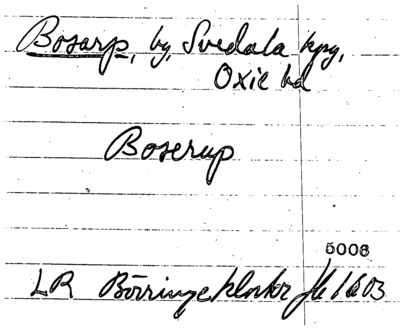 Bosarp, by, Svedala kpg,
Oxie hd
Boserup
5008
LR Börringekloster Jb 1603